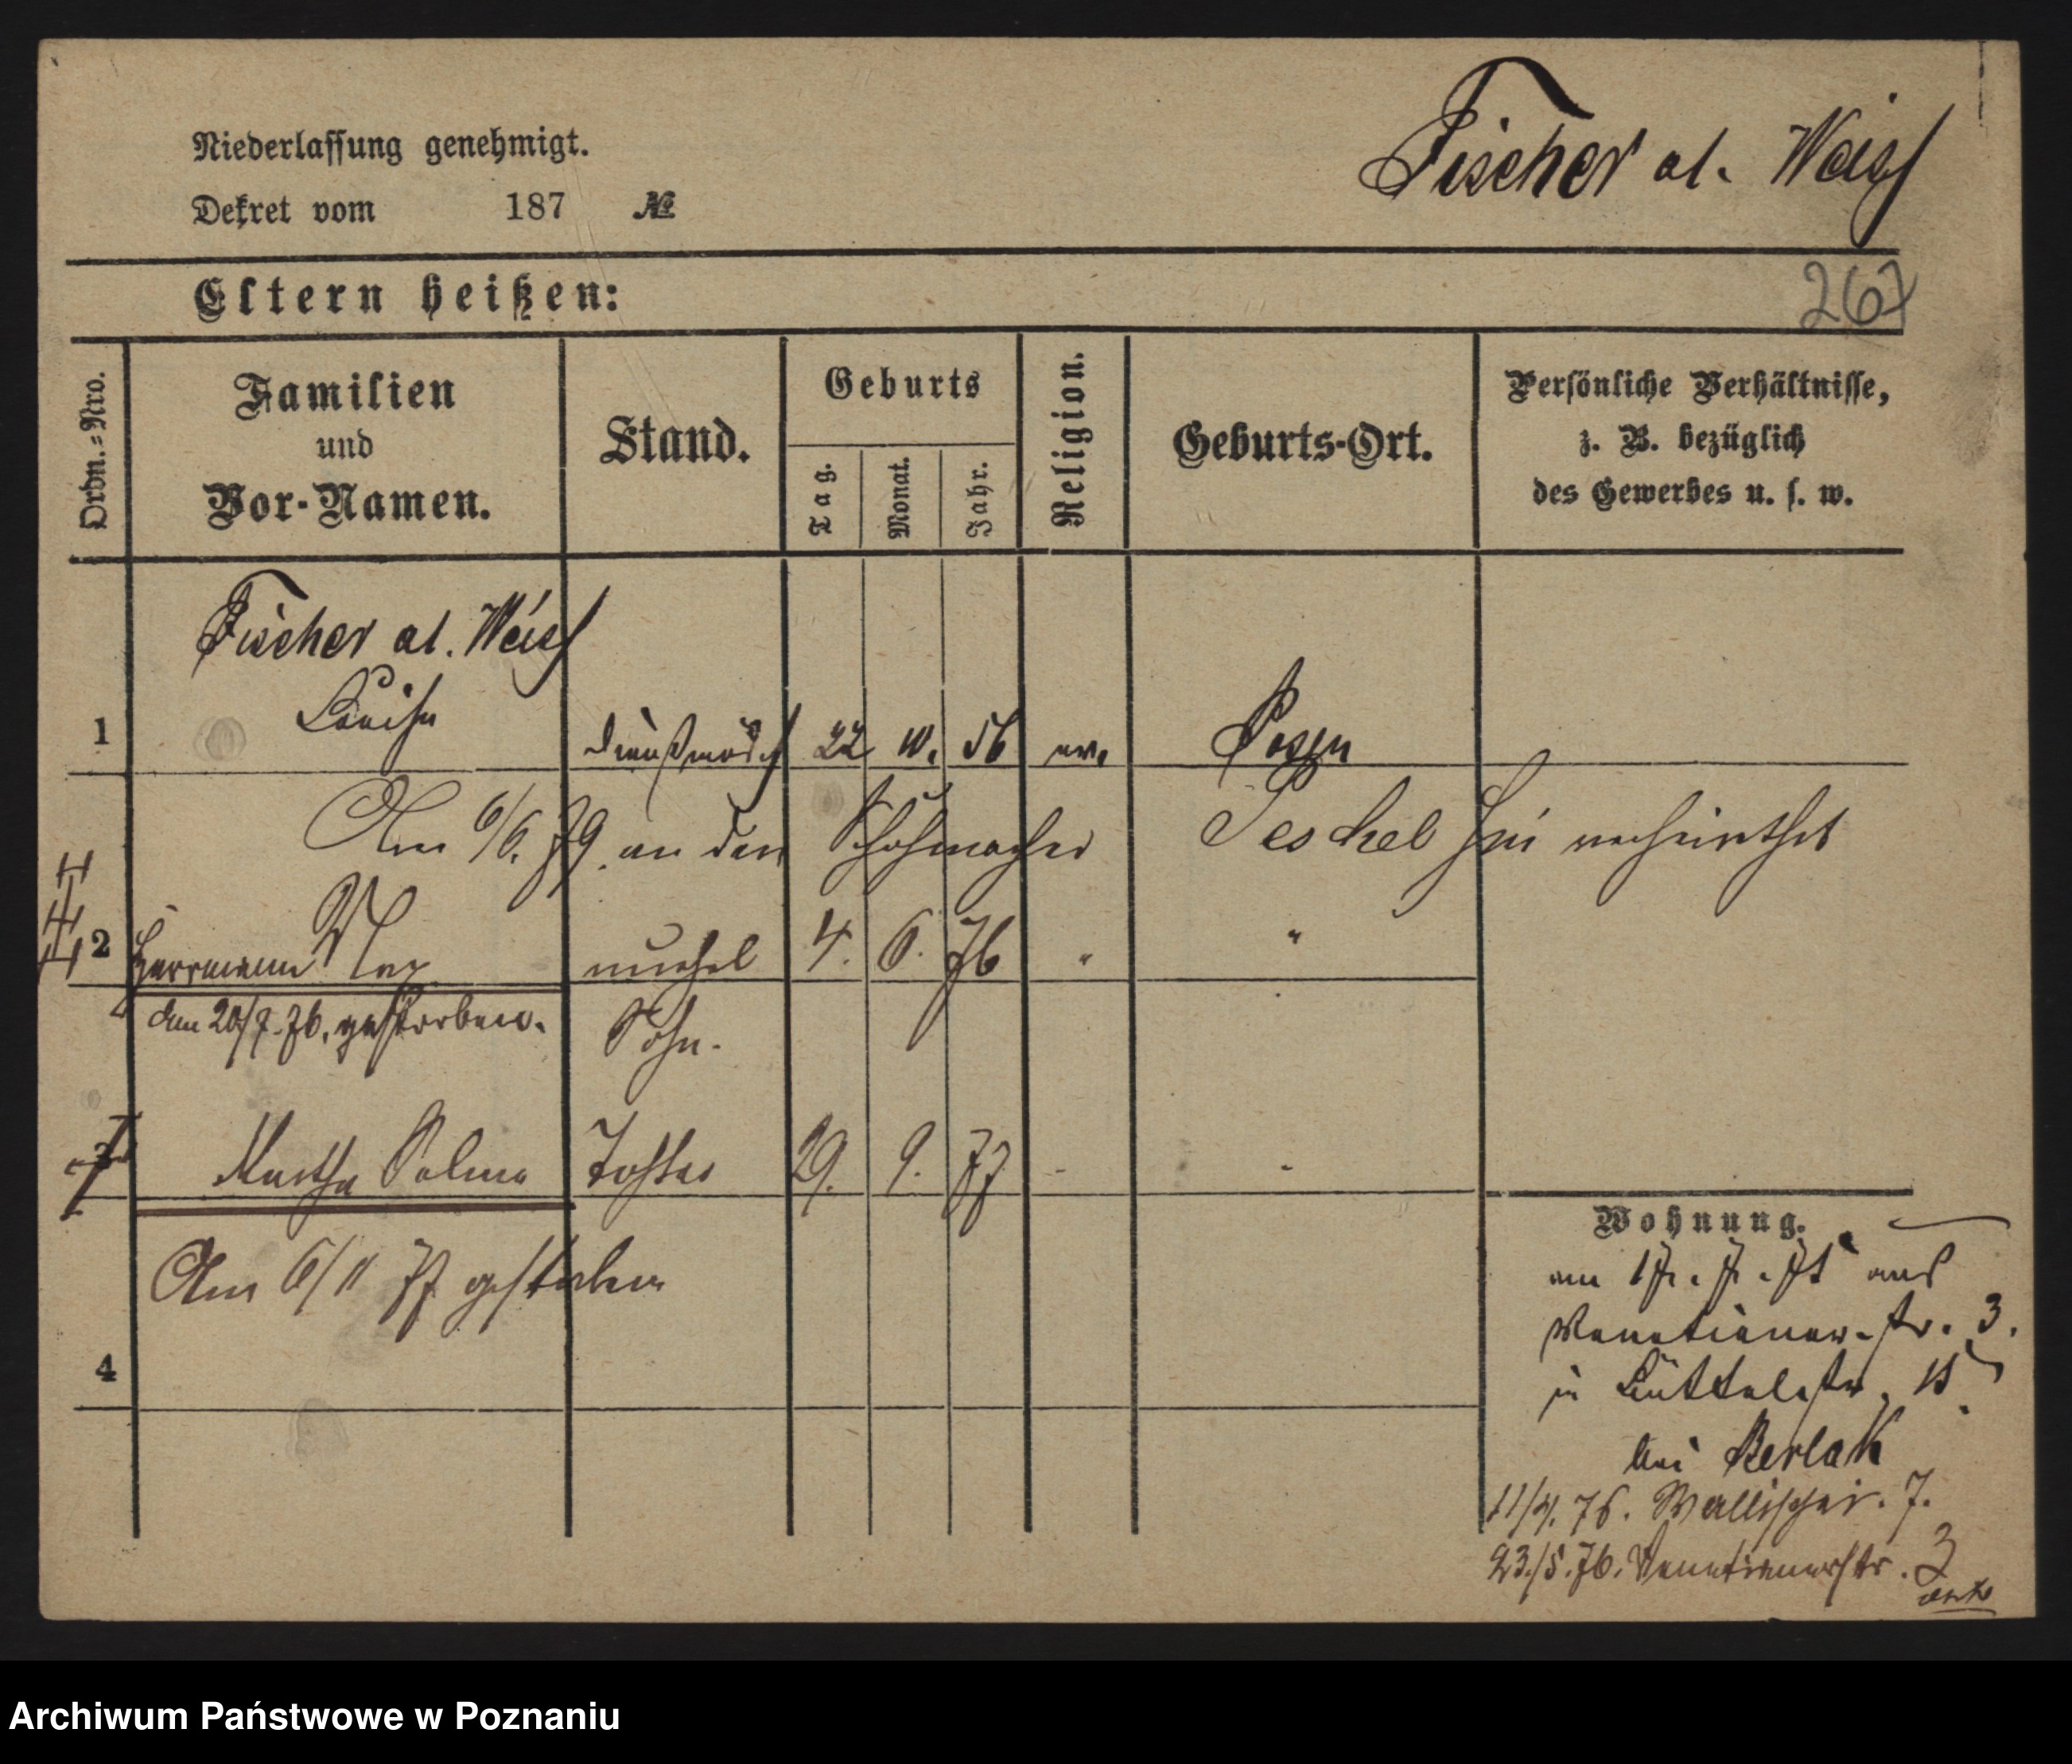 Fischer al. Weiss
Niederlassung genehmigt.
Dekret vom 187 №
Eltern heißen:
267
Ordn.=Nro.
Familien
und
Vor-Namen.
Stand.
Geburts
Tag.
Monat.
Jahr.
Religion.
Geburts-Ort.
Persönliche Verhältnisse,
z. B. bezüglich
des Gewerbes u. s. w.
Fischer al. Weiss
1 Louise 22 10. 56 ev. Posen
Am 6/6. 79. an den Schuhmacher Peschel hier verheirathet
2 Herrmann Max unehel 4. 6. 76 " "
am 20/7. 76. gestorben. Sohn.
3 Martha Selma Tochter 29. 9. 77 - -
Am 6/11 77 gestorben
4
Wohnung.
am 17. 7. 75 aus
Venetianer-str. 3.
in Büttelstr. 15.
bei Berlak
11/4. 76. Wallischei. 7.
23./5. 76. Venetianerstr. 3
Archiwum Państwowe w Poznaniu